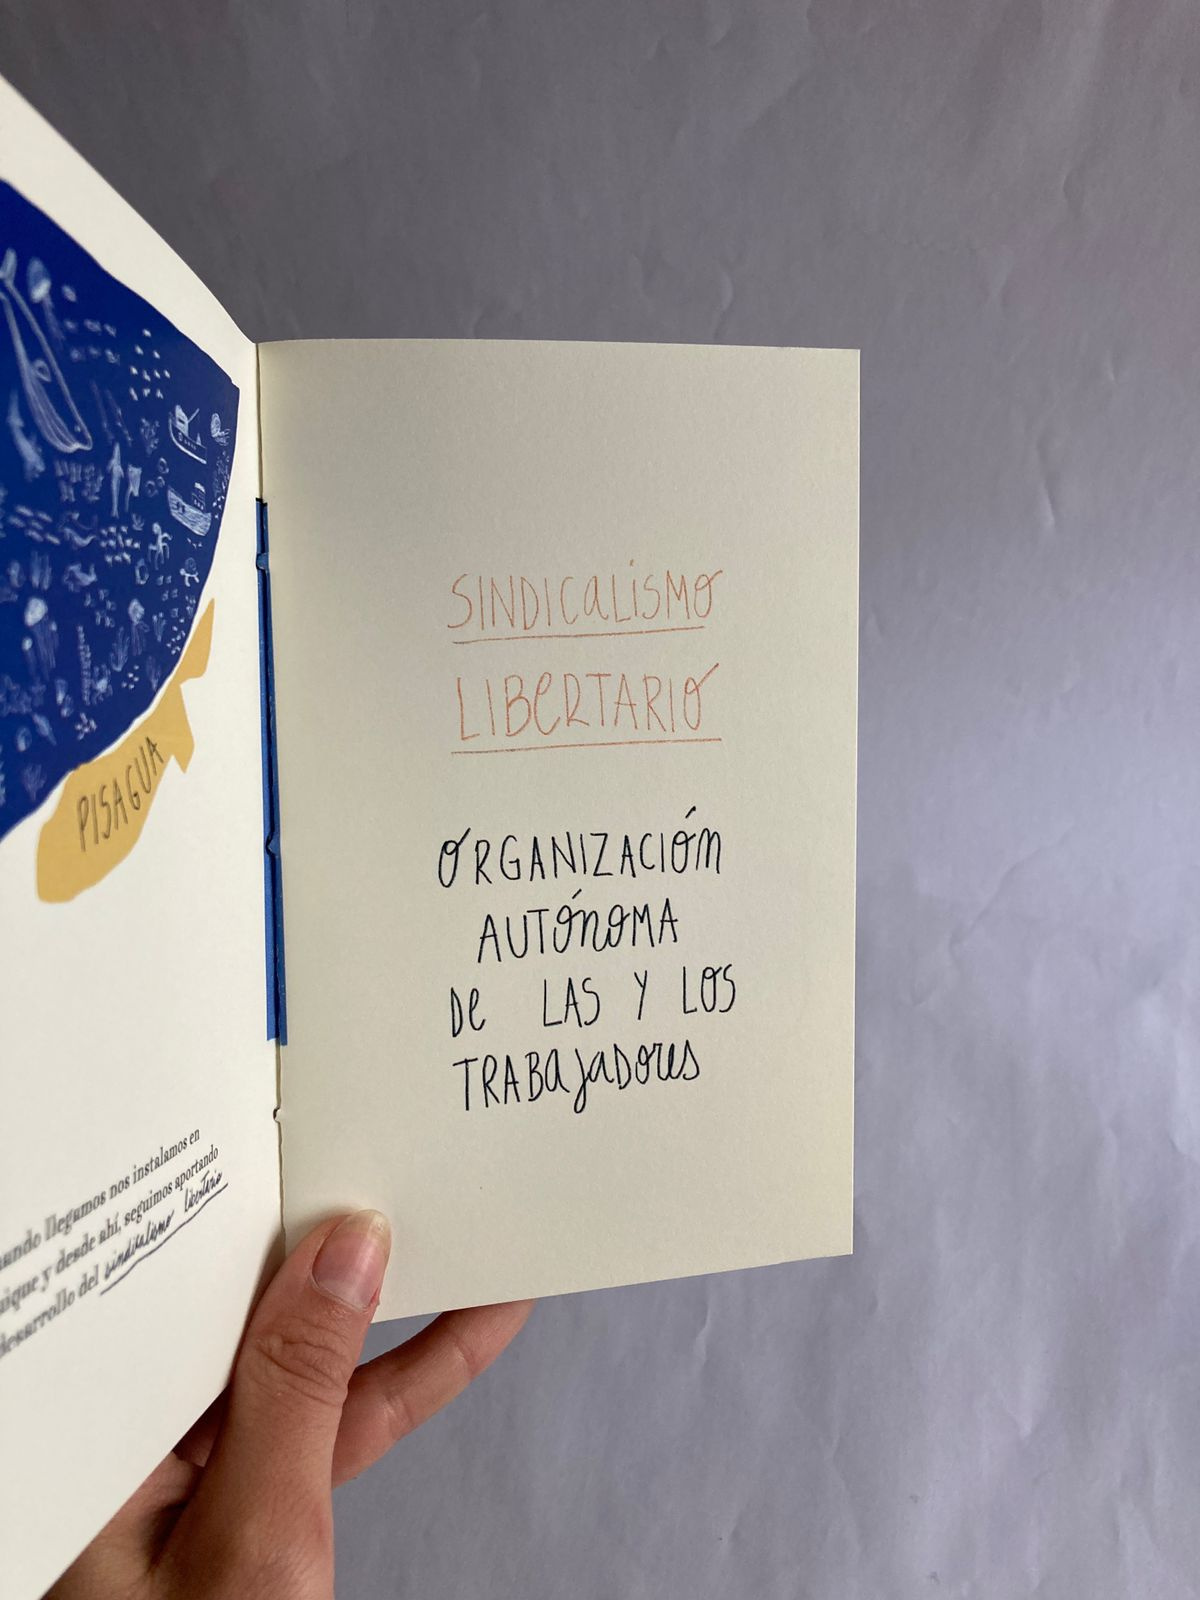 PISAGUA
llegamos nos instalamos en
y desde ahí, seguimos aportando
desarrollo del sindicalismo libertario
SINDICALISMO
LIBERTARIO
ORGANIZACIÓN
AUTÓNOMA
DE LAS Y LOS
TRABAJADORES